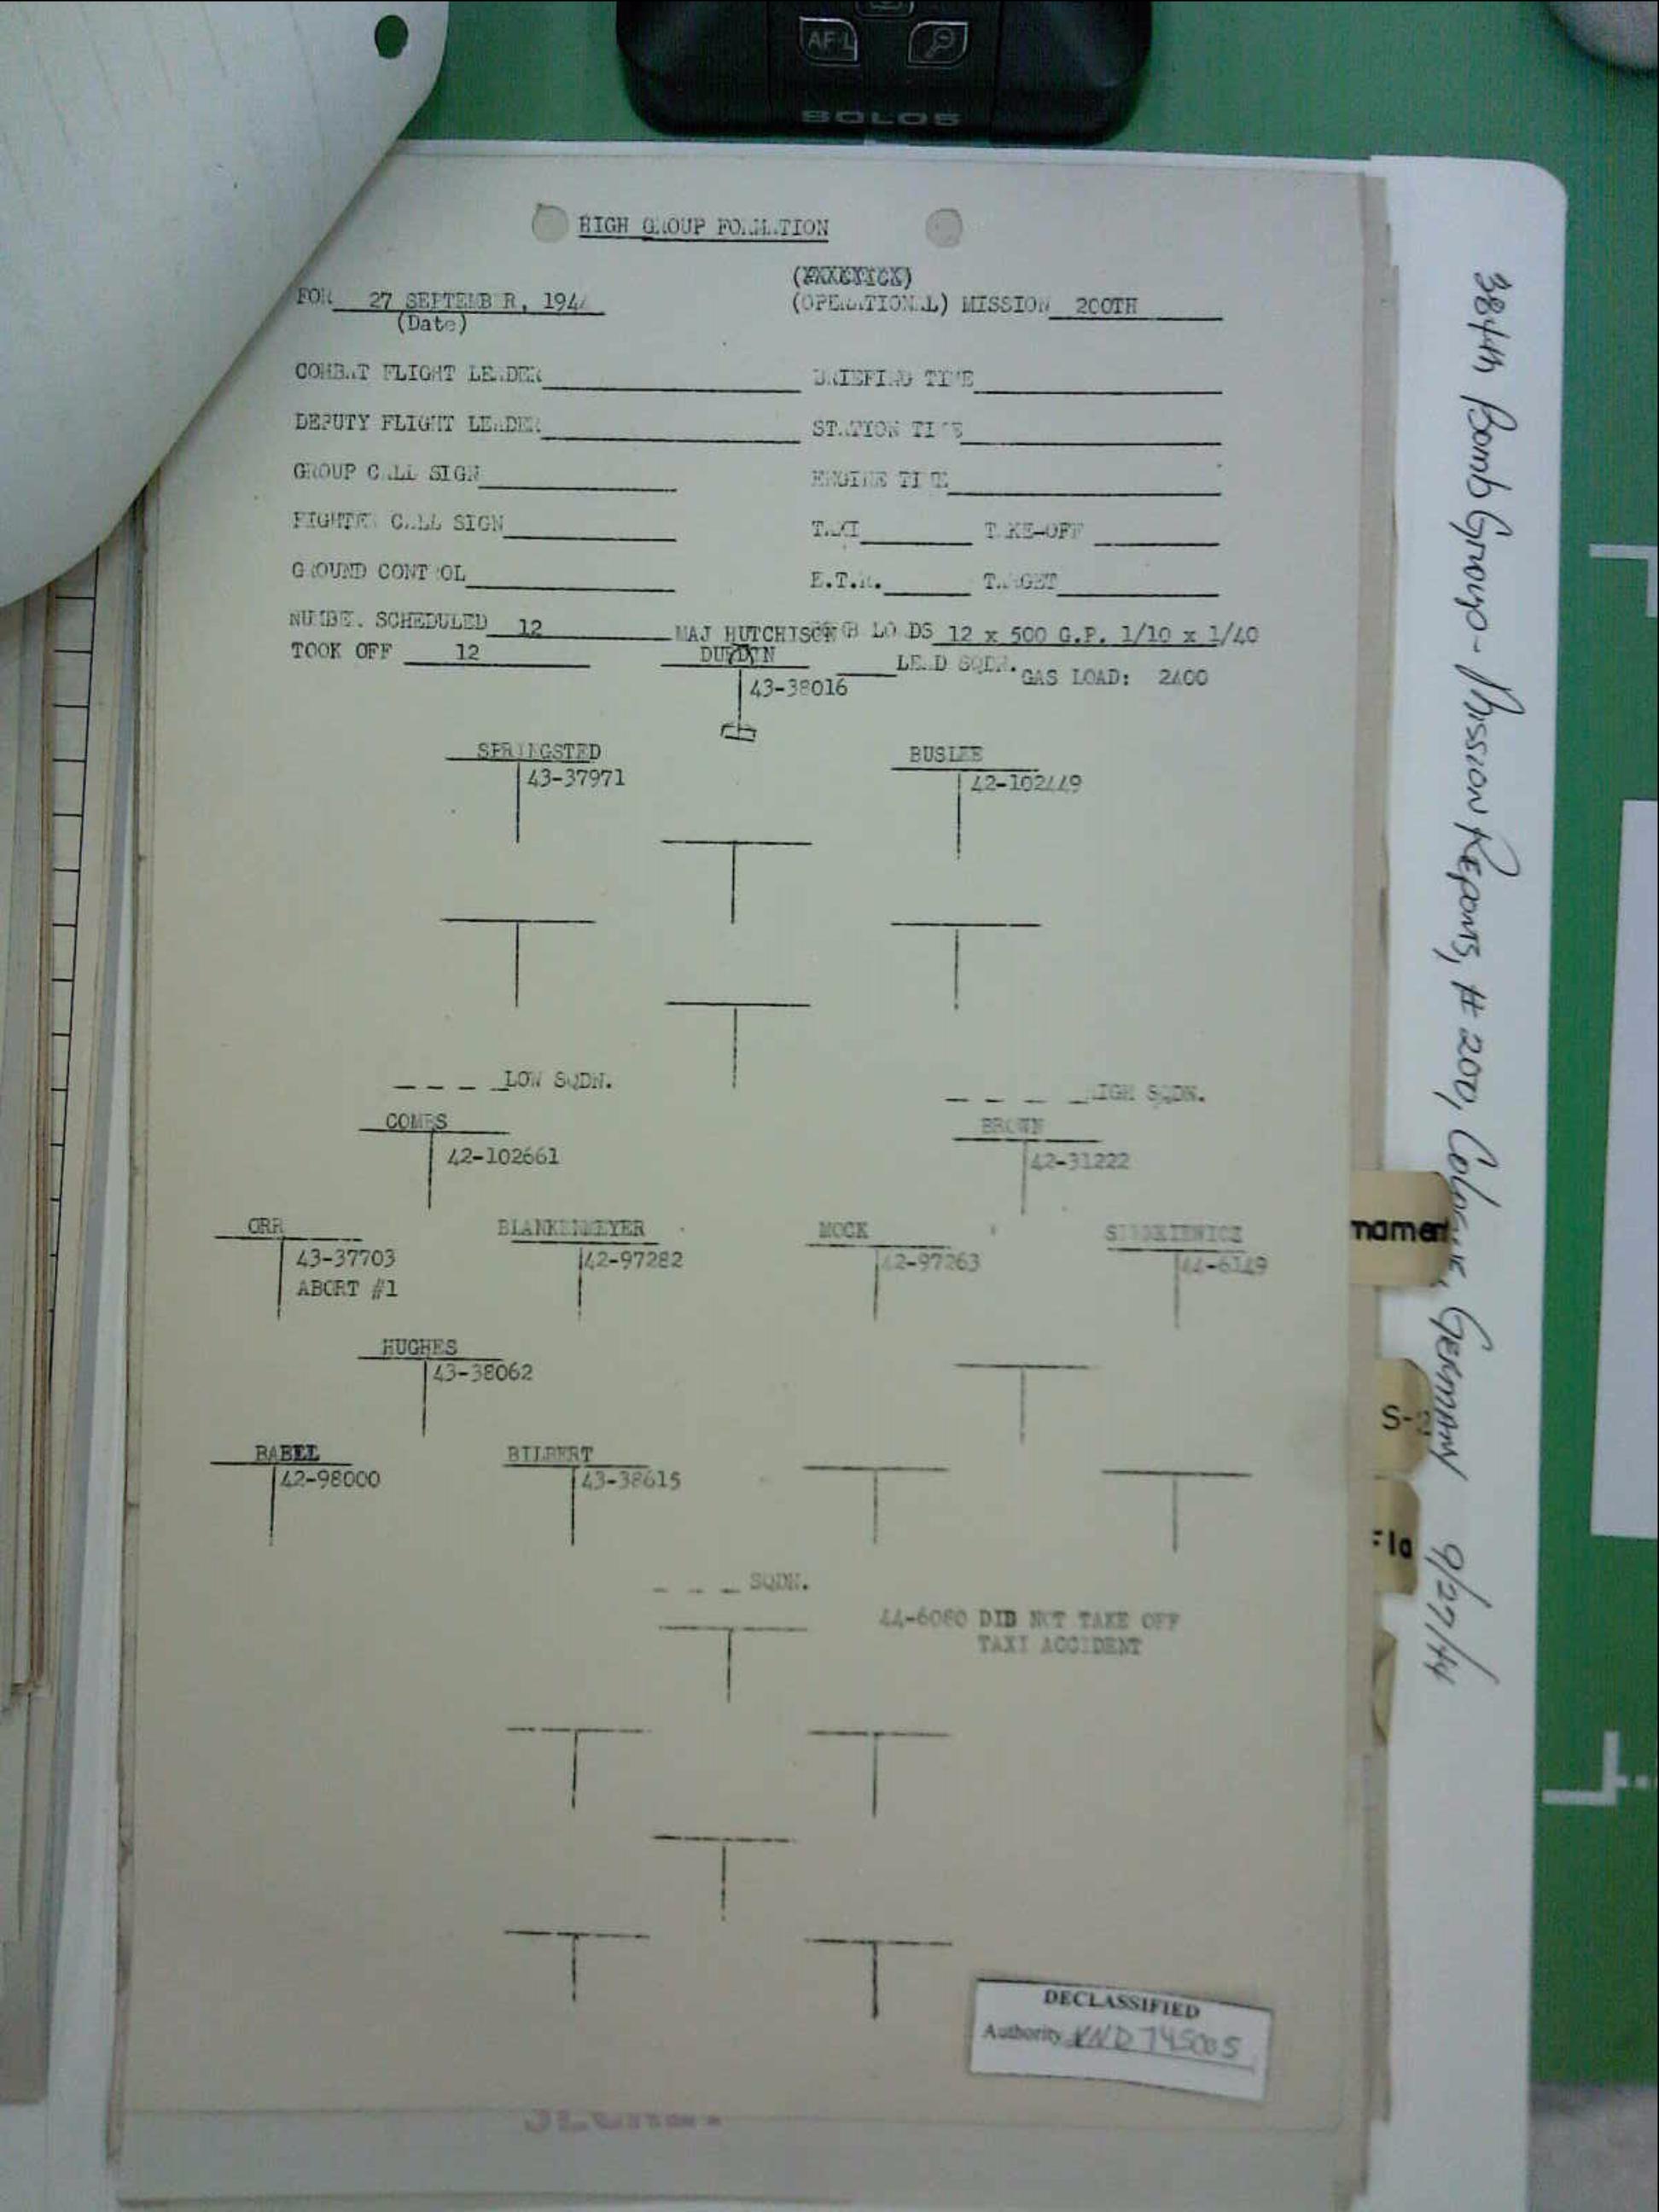 AF L
BOLOS
HIGH GROUP FORMATION
FOR 27 SEPTEMBER, 1944
(Date)
(OPERATIONAL) MISSION 200TH
COMBAT FLIGHT LEADER
BRIEFING TIME
DEPUTY FLIGHT LEADER
STATION TIME
GROUP CALL SIGN
ENGINE TIME
FIGHTER CALL SIGN
TAXI TAKE-OFF
GROUND CONTROL
E.T.R. TARGET
NUMBER SCHEDULED 12
MAJ HUTCHISON LOADS 12 x 500 G.P. 1/10 x 1/40
TOOK OFF 12
DURDIN
LEAD SQDN. GAS LOAD: 2400
43-38016
SPRINGSTED
43-37971
BUSLEE
42-102449
LOW SQDN.
HIGH SQDN.
COMBS
42-102661
BROWN
42-31222
ORR
43-37703
ABORT #1
BLANKENMEYER
42-97282
MOCK
42-97263
44-6149
HUGHES
43-38062
BABEL
42-98000
BILBERT
43-38615
SQDN.
44-6080 DIB NOT TAKE OFF
TAXI ACCIDENT
DECLASSIFIED
Authority NND 745005
384th Bomb Group - Mission Reports, #200, Cologne, German 9/27/44
namen
S-2
Fla